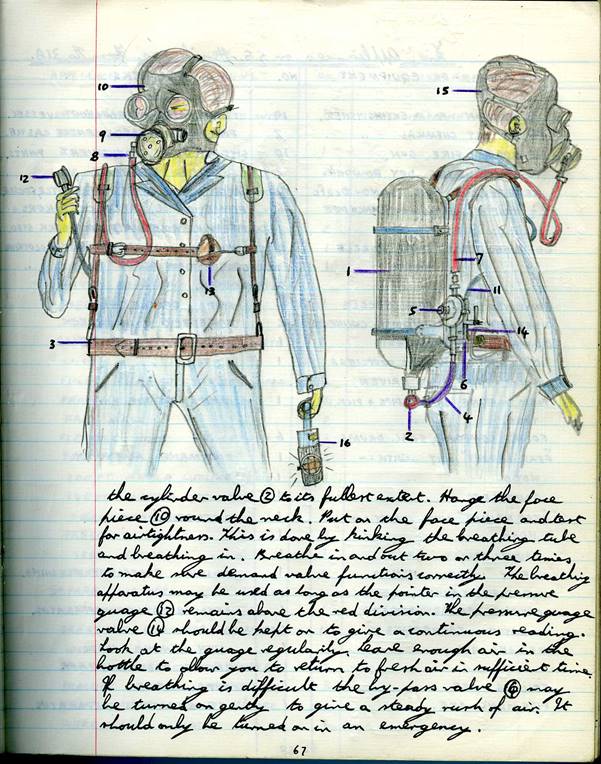 10
9
8
12
13
3
16
15
1
7
11
5
14
6
2
4
the cylinder valve ② to its fullest extent. Hange the face
piece ⑩ round the neck. Put on the face piece and test
for airtightness. This is done by kinking the breathing tube
and breathing in. Breathe in and out two or three times,
to make sure demand valve functions correctly. The breathing
apparatus may be used as long as the pointer in the pressure
guage ⑫ remains above the red division. The pressure guage
valve ⑭ should be kept on to give a continuous reading.
Look at the guage regularity. Leave enough air in the
bottle to allow you to return to fresh air in sufficient time.
If breathing is difficult the by-pass valve ⑥ may
be turned on gently to give a steady rush of air. It
should only be turned on in an emergency.
67